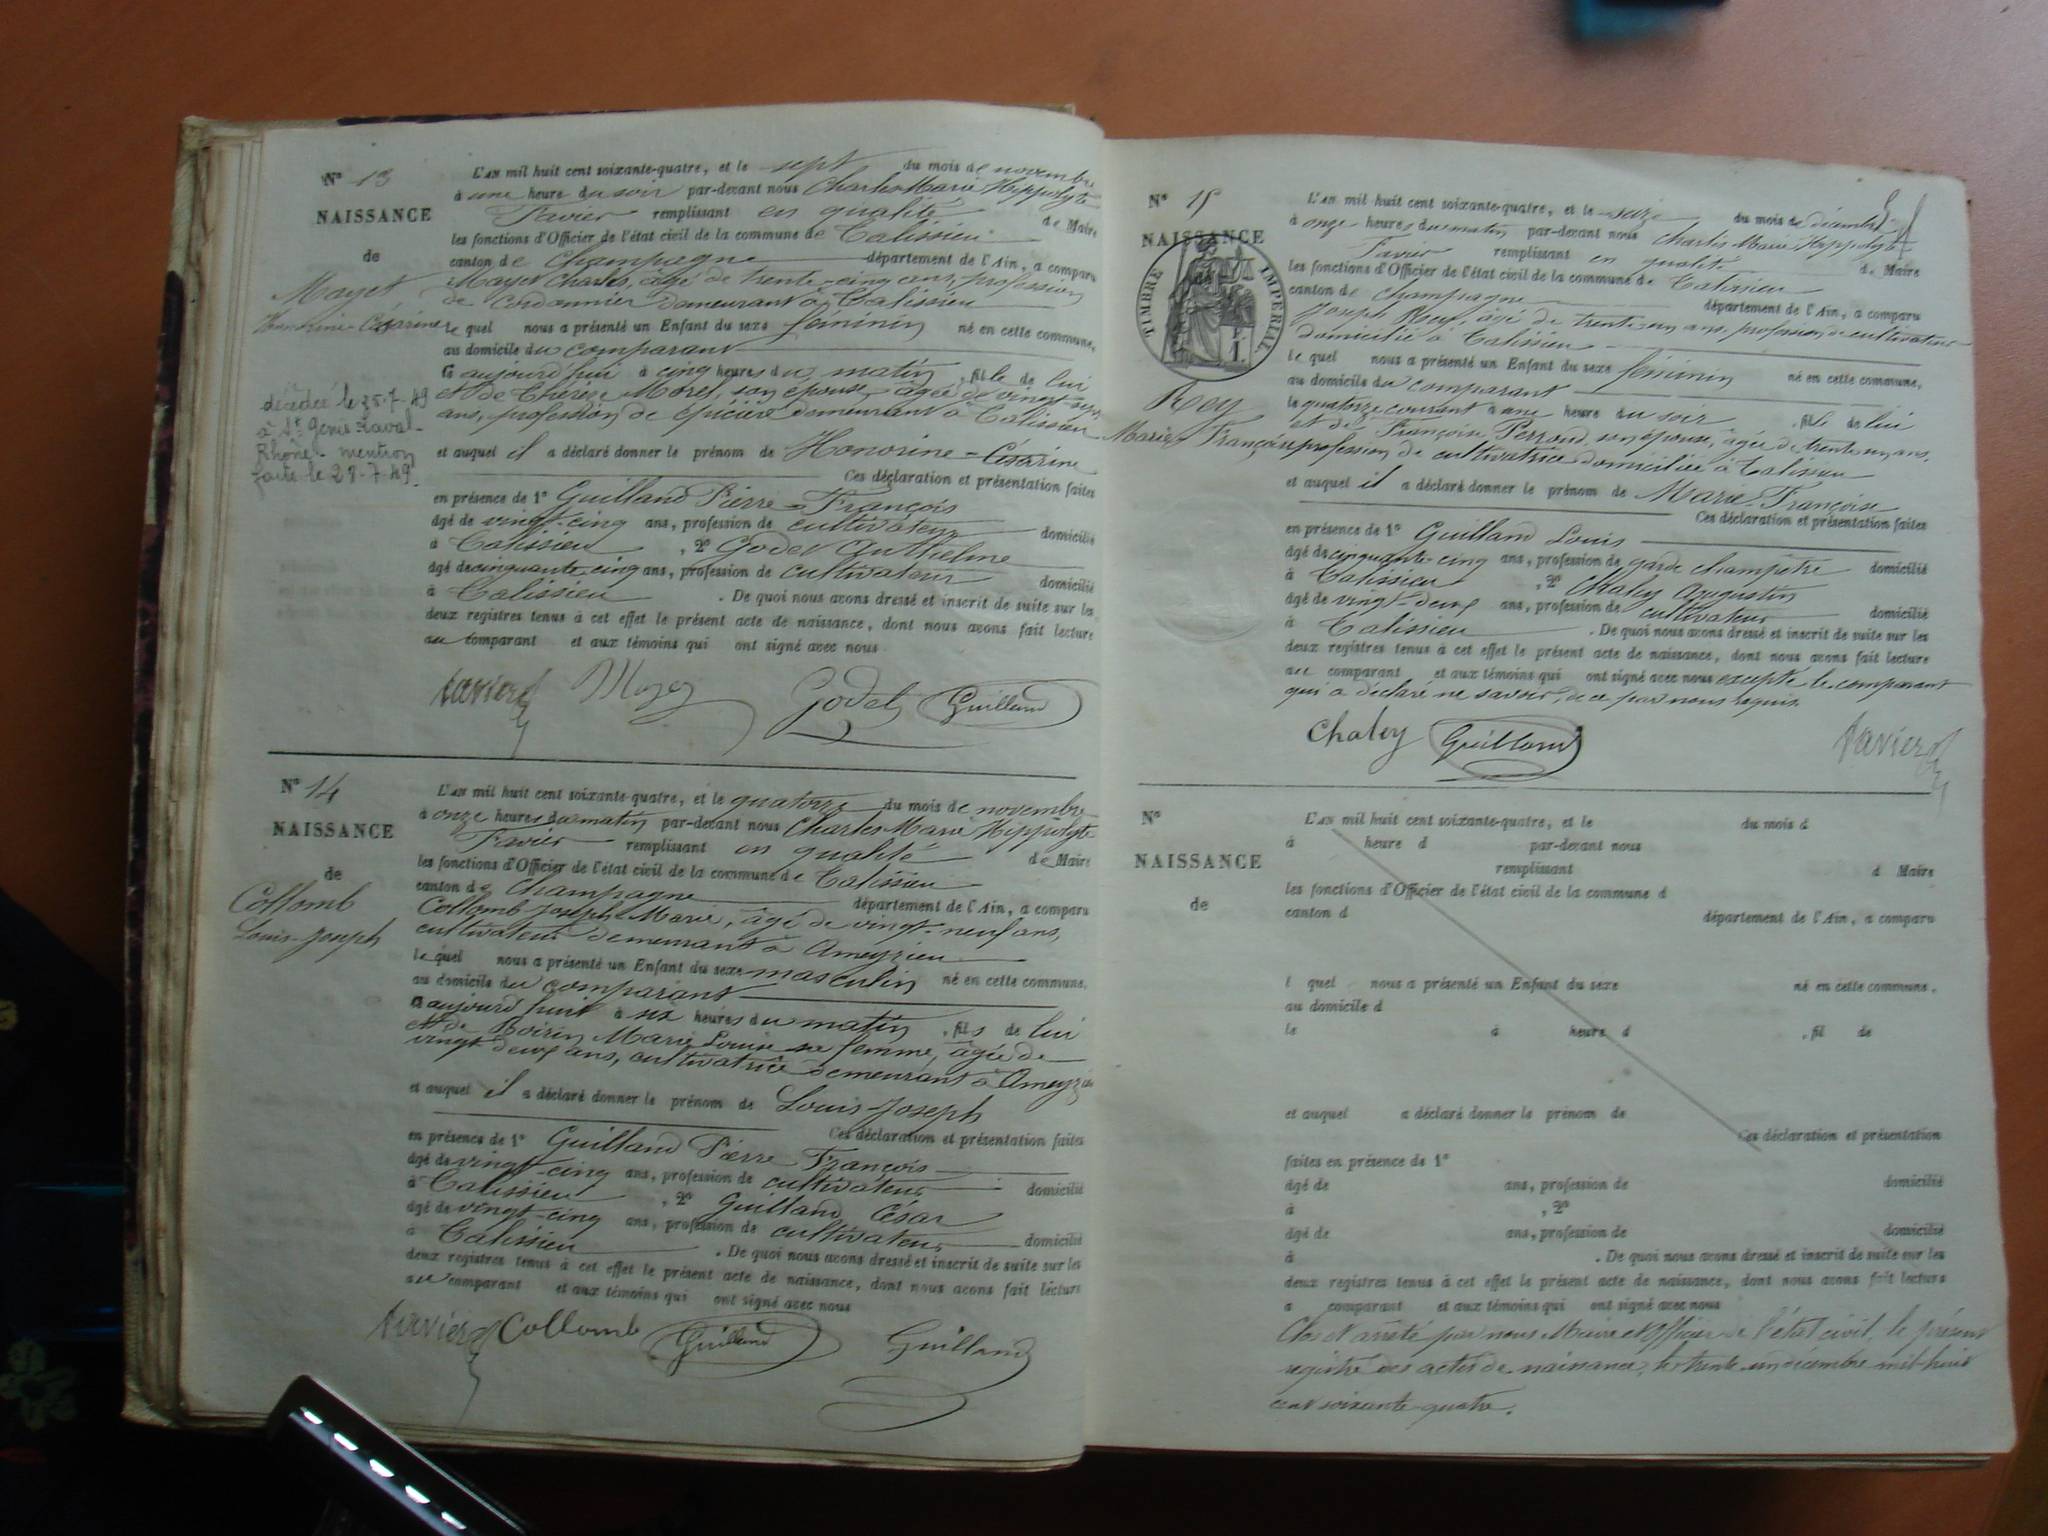 N° 13
NAISSANCE
de
Mayet
Honorine-Césarine
décédée le 25-7-49
à St Genis-Laval-
Rhône - mention
faite le 28-7-49.
L'AN mil huit cent soixante-quatre, et le sept du mois de novembre
à une heure du soir par-devant nous Charles Marie Hippolyte
Favier remplissant en qualité de Maire
les fonctions d'Officier de l'état civil de la commune de Talissieu
canton de Champagne département de l'Ain, a comparu
Mayet Charles, âgé de trente-cinq ans, profession
de Cordonnier demeurant à Talissieu
le quel nous a présenté un Enfant du sexe féminin né en cette commune,
au domicile du comparant
aujourd'hui à cinq heures du matin, fille de lui
et de Thérèse Morel, son épouse, âgée de vingt-sept
ans, profession de épicière demeurant à Talissieu
et auquel il a déclaré donner le prénom de Honorine-Césarine
Ces déclaration et présentation faites
en présence de 1° Guilland Pierre-François
âgé de vingt-cinq ans, profession de cultivateur domicilié
à Talissieu, 2° Godet Anthelme
âgé de cinquante-cinq ans, profession de cultivateur domicilié
à Talissieu. De quoi nous avons dressé et inscrit de suite sur les
deux registres tenus à cet effet le présent acte de naissance, dont nous avons fait lecture
au comparant et aux témoins qui ont signé avec nous
Favier Mayet Godet Guilland
N° 14
NAISSANCE
de
Collomb
Louis-Joseph
L'AN mil huit cent soixante-quatre, et le quatorze du mois de novembre
à onze heures du matin par-devant nous Charles Marie Hippolyte
Favier remplissant en qualité de Maire
les fonctions d'Officier de l'état civil de la commune de Talissieu
canton de Champagne département de l'Ain, a comparu
Collomb Joseph-Marie, âgé de vingt-neuf ans,
cultivateur demeurant à Ameyzieu
le quel nous a présenté un Enfant du sexe masculin né en cette commune,
au domicile du comparant
aujourd'hui à six heures du matin, fils de lui
et de Boirin Marie Louise sa femme, âgée de
vingt deux ans, cultivatrice demeurant à Ameyzieu
et auquel il a déclaré donner le prénom de Louis-Joseph
Ces déclaration et présentation faites
en présence de 1° Guilland Pierre François
âgé de vingt-cinq ans, profession de cultivateur domicilié
à Talissieu, 2° Guilland César
âgé de vingt-cinq ans, profession de cultivateur domicilié
à Talissieu. De quoi nous avons dressé et inscrit de suite sur les
deux registres tenus à cet effet le présent acte de naissance, dont nous avons fait lecture
au comparant et aux témoins qui ont signé avec nous
Favier Collomb Guilland Guilland
N° 15
NAISSANCE
TIMBRE IMPERIAL
Rey
Marie-Françoise
L'AN mil huit cent soixante-quatre, et le seize du mois de décembre
à onze heures du matin par-devant nous Charles Marie Hippolyte
Favier remplissant en qualité de Maire
les fonctions d'Officier de l'état civil de la commune de Talissieu
canton de Champagne département de l'Ain, a comparu
Joseph Rey, âgé de trente-un ans, profession de cultivateur
domicilié à Talissieu
le quel nous a présenté un Enfant du sexe féminin né en cette commune,
au domicile du comparant
le quatorze courant à une heure du soir, fille de lui
et de Françoise Perrond, son épouse, âgée de trente un ans,
profession de cultivatrice domiciliée à Talissieu
et auquel il a déclaré donner le prénom de Marie Françoise
Ces déclaration et présentation faites
en présence de 1° Guilland Louis
âgé de cinquante-cinq ans, profession de garde champêtre domicilié
à Talissieu, 2° Chaley Augustin
âgé de vingt-deux ans, profession de cultivateur domicilié
à Talissieu. De quoi nous avons dressé et inscrit de suite sur les
deux registres tenus à cet effet le présent acte de naissance, dont nous avons fait lecture
au comparant et aux témoins qui ont signé avec nous excepté le comparant
qui a déclaré ne savoir, de ce par nous requis.
Chaley Guilland Favier
N°
NAISSANCE
de
L'AN mil huit cent soixante-quatre, et le du mois d
à heure d par-devant nous
remplissant d Maire
les fonctions d'Officier de l'état civil de la commune d
canton d département de l'Ain, a comparu
l quel nous a présenté un Enfant du sexe né en cette commune,
au domicile d
le à heure d , fil de
et auquel a déclaré donner le prénom de
Ces déclaration et présentation
faites en présence de 1°
âgé de ans, profession de domicilié
à , 2°
âgé de ans, profession de domicilié
à . De quoi nous avons dressé et inscrit de suite sur les
deux registres tenus à cet effet le présent acte de naissance, dont nous avons fait lecture
a comparant et aux témoins qui ont signé avec nous
Clos et arrêté par nous Maire et Officier de l'état civil, le présent
registre des actes de naissance, le trente-un décembre mil huit
cent soixante-quatre.